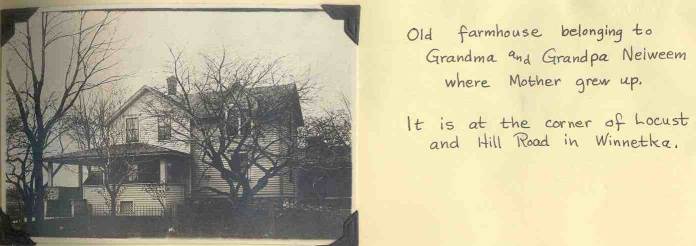 Old farmhouse belonging to
Grandma and Grandpa Neiweem
where Mother grew up.
It is at the corner of Locust
and Hill Road in Winnetka.